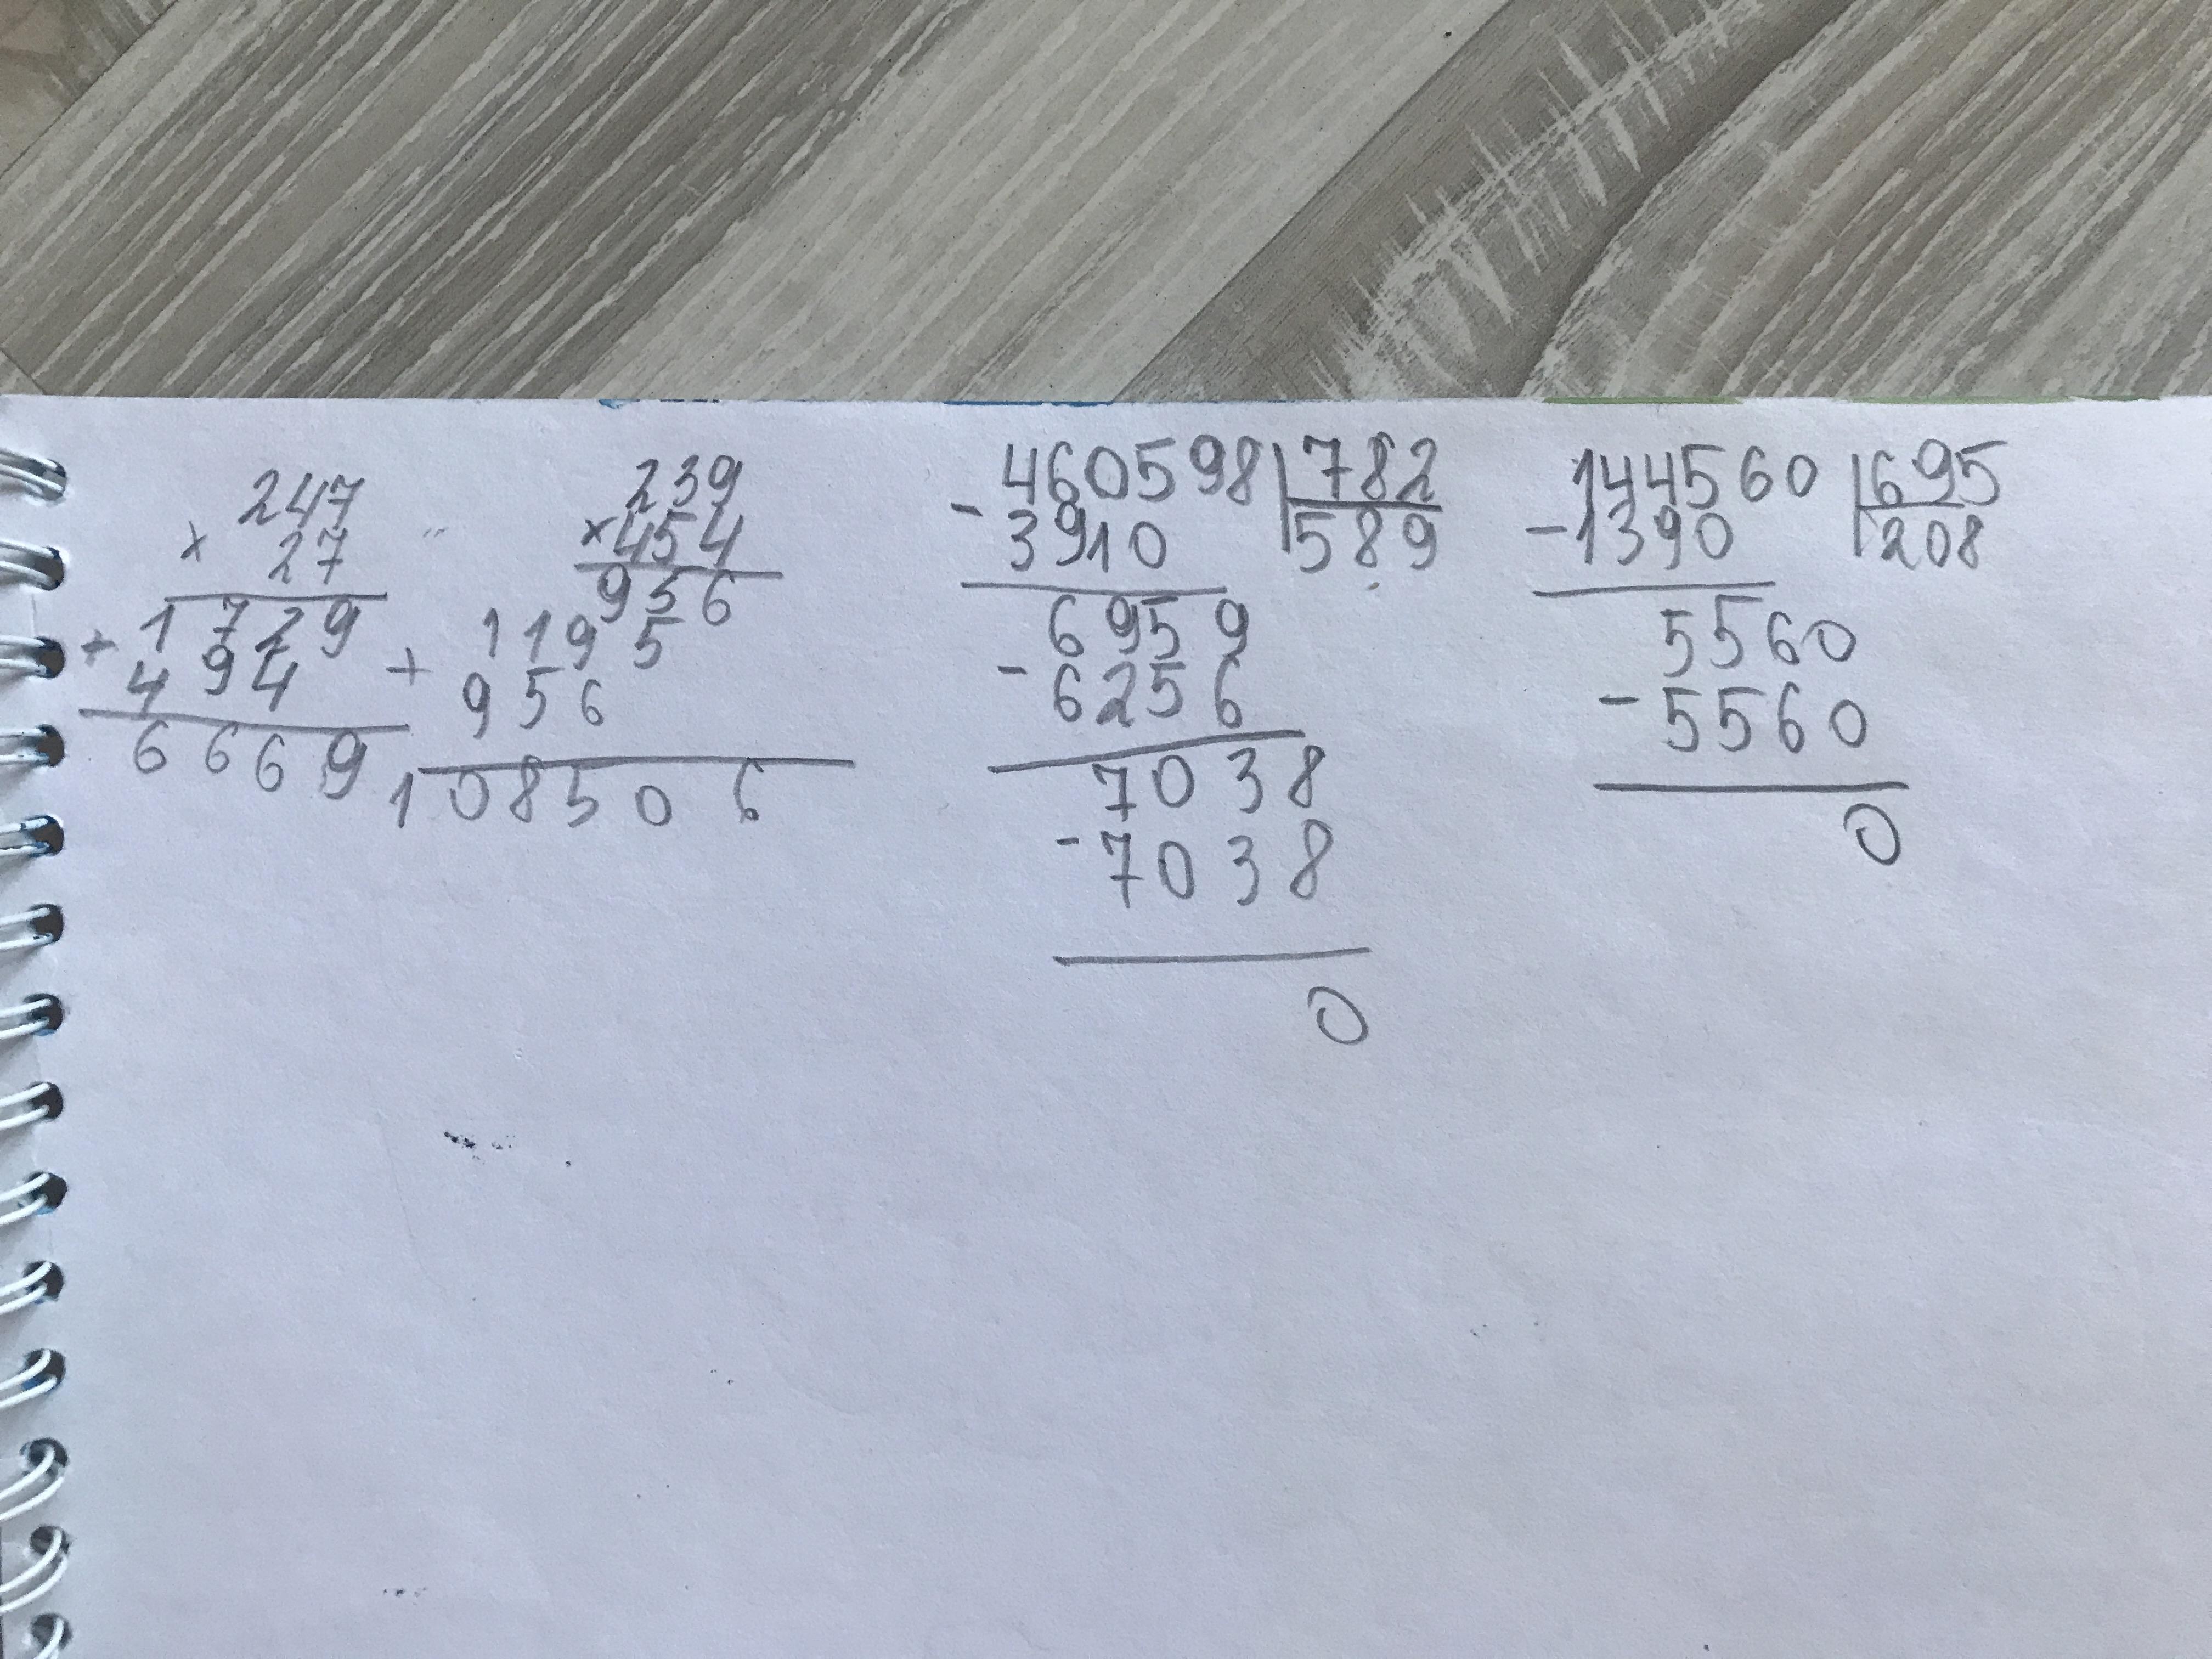 247
× 27
+ 1729
494
6669
239
× 454
956
+ 1195
956
108506
- 460598 | 782
3910 | 589
6959
- 6256
7038
- 7038
0
144560 | 695
- 1390 | 208
5560
- 5560
0